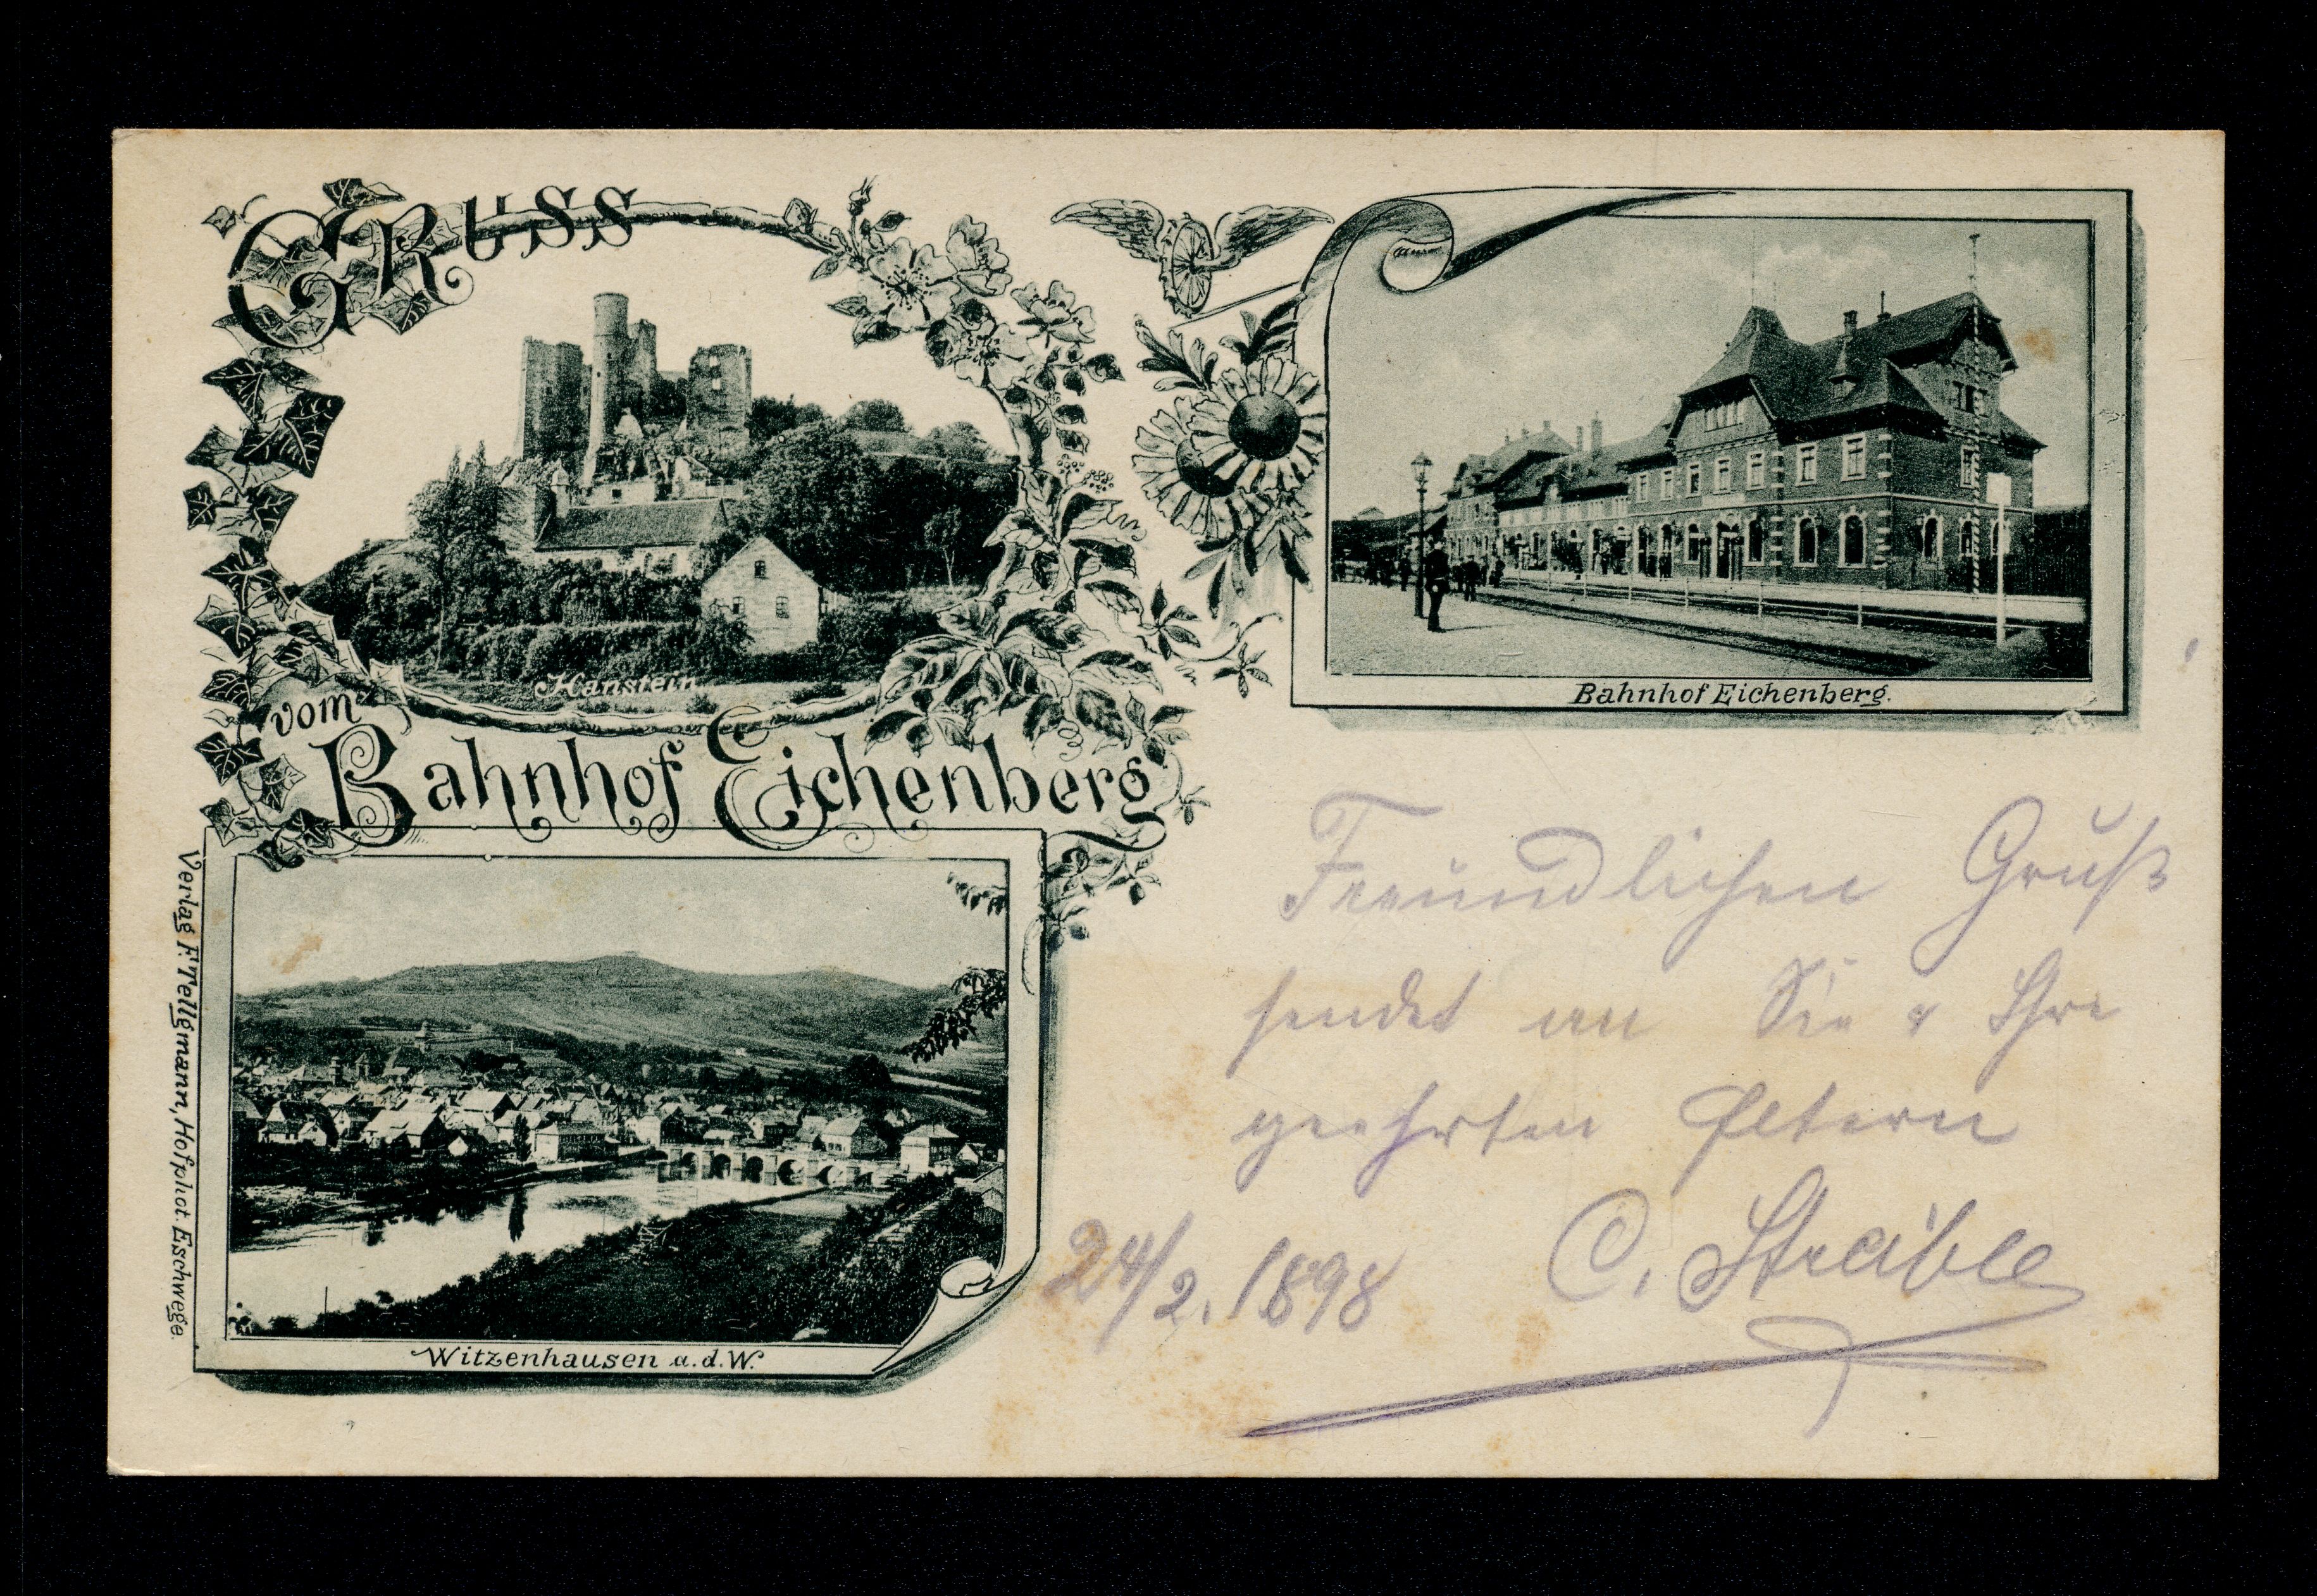 GRUSS
vom
Bahnhof Eichenberg
Hanstein
Bahnhof Eichenberg.
Witzenhausen a.d.W.
Verlag F. Tellgmann, Hofphot. Eschwege.
Freundlichen Gruß
sendet an Sie & Ihre
geehrten Eltern
C. Streible
24/2. 1898